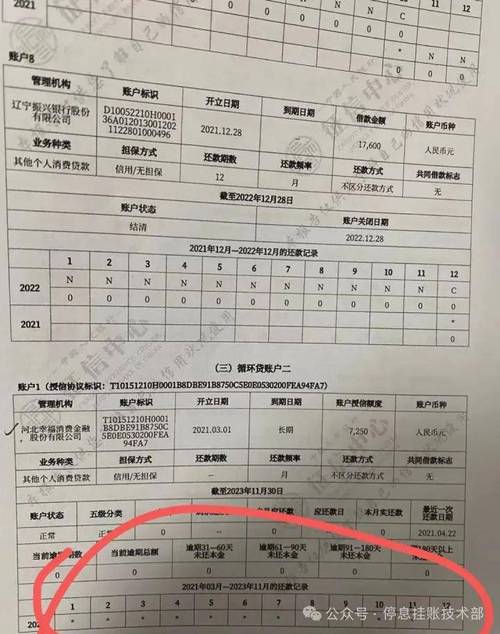 2021
C
*
N
N
0
0
0
账户8
管理机构 账户标识 开立日期 到期日期 借款金额 账户币种
辽宁振兴银行股份有限公司 D10052210H0001 36A012013001202 1122801000496 2021.12.28 17,600 人民币元
业务种类 担保方式 还款期数 还款频率 还款方式 共同借款标志
其他个人消费贷款 信用/无担保 12 月 不区分还款方式 无
截至2022年12月28日
账户状态 账户关闭日期
结清 2022.12.28
2021年12月—2022年12月的还款记录
1 2 3 4 5 6 7 8 9 10 11 12
2022 N N N N N N N N N N N C
0 0 0 0 0 0 0 0 0 0 0 0
2021 *
0
（三）循环贷账户二
账户1（授信协议标识：T10151210H0001B8DBE91B8750C5E0E0530200FEA94FA7）
管理机构 账户标识 开立日期 到期日期 账户授信额度 账户币种
河北幸福消费金融股份有限公司 T10151210H0001 B8DBE91B8750C 5E0E0530200FEA 94FA7 2021.03.01 长期 7,250 人民币元
业务种类 担保方式 还款期数 还款频率 还款方式 共同借款标志
其他个人消费贷款 信用/无担保 -- 月 不区分还款方式 无
截至2023年11月30日
账户状态 五级分类 应还款日 本月实还款 最近一次还款日期
正常 正常 0 2021.04.22
当前逾期期数 当前逾期总额 逾期31—60天未还本金 逾期61—90天未还本金 逾期91—180天未还本金 180天以上未还本金
0 0 0 0 0 0
2021年03月—2023年11月的还款记录
1 2 3 4 5 6 7 8 9 10 11 12
* * * * * * * * * * *
公众号 · 停息挂账技术部